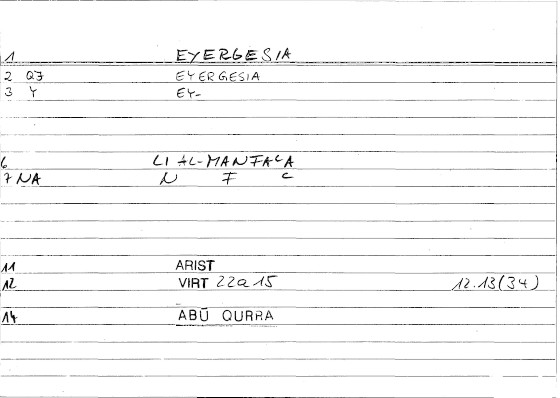 1 EYERGESIA
2 QJ EYERGESIA
3 Y EY-
6 LI AL-MANFAcA
7 NA N F c
11 ARIST
12 VIRT 22a 15 12.13(34)
14 ABŪ QURRA